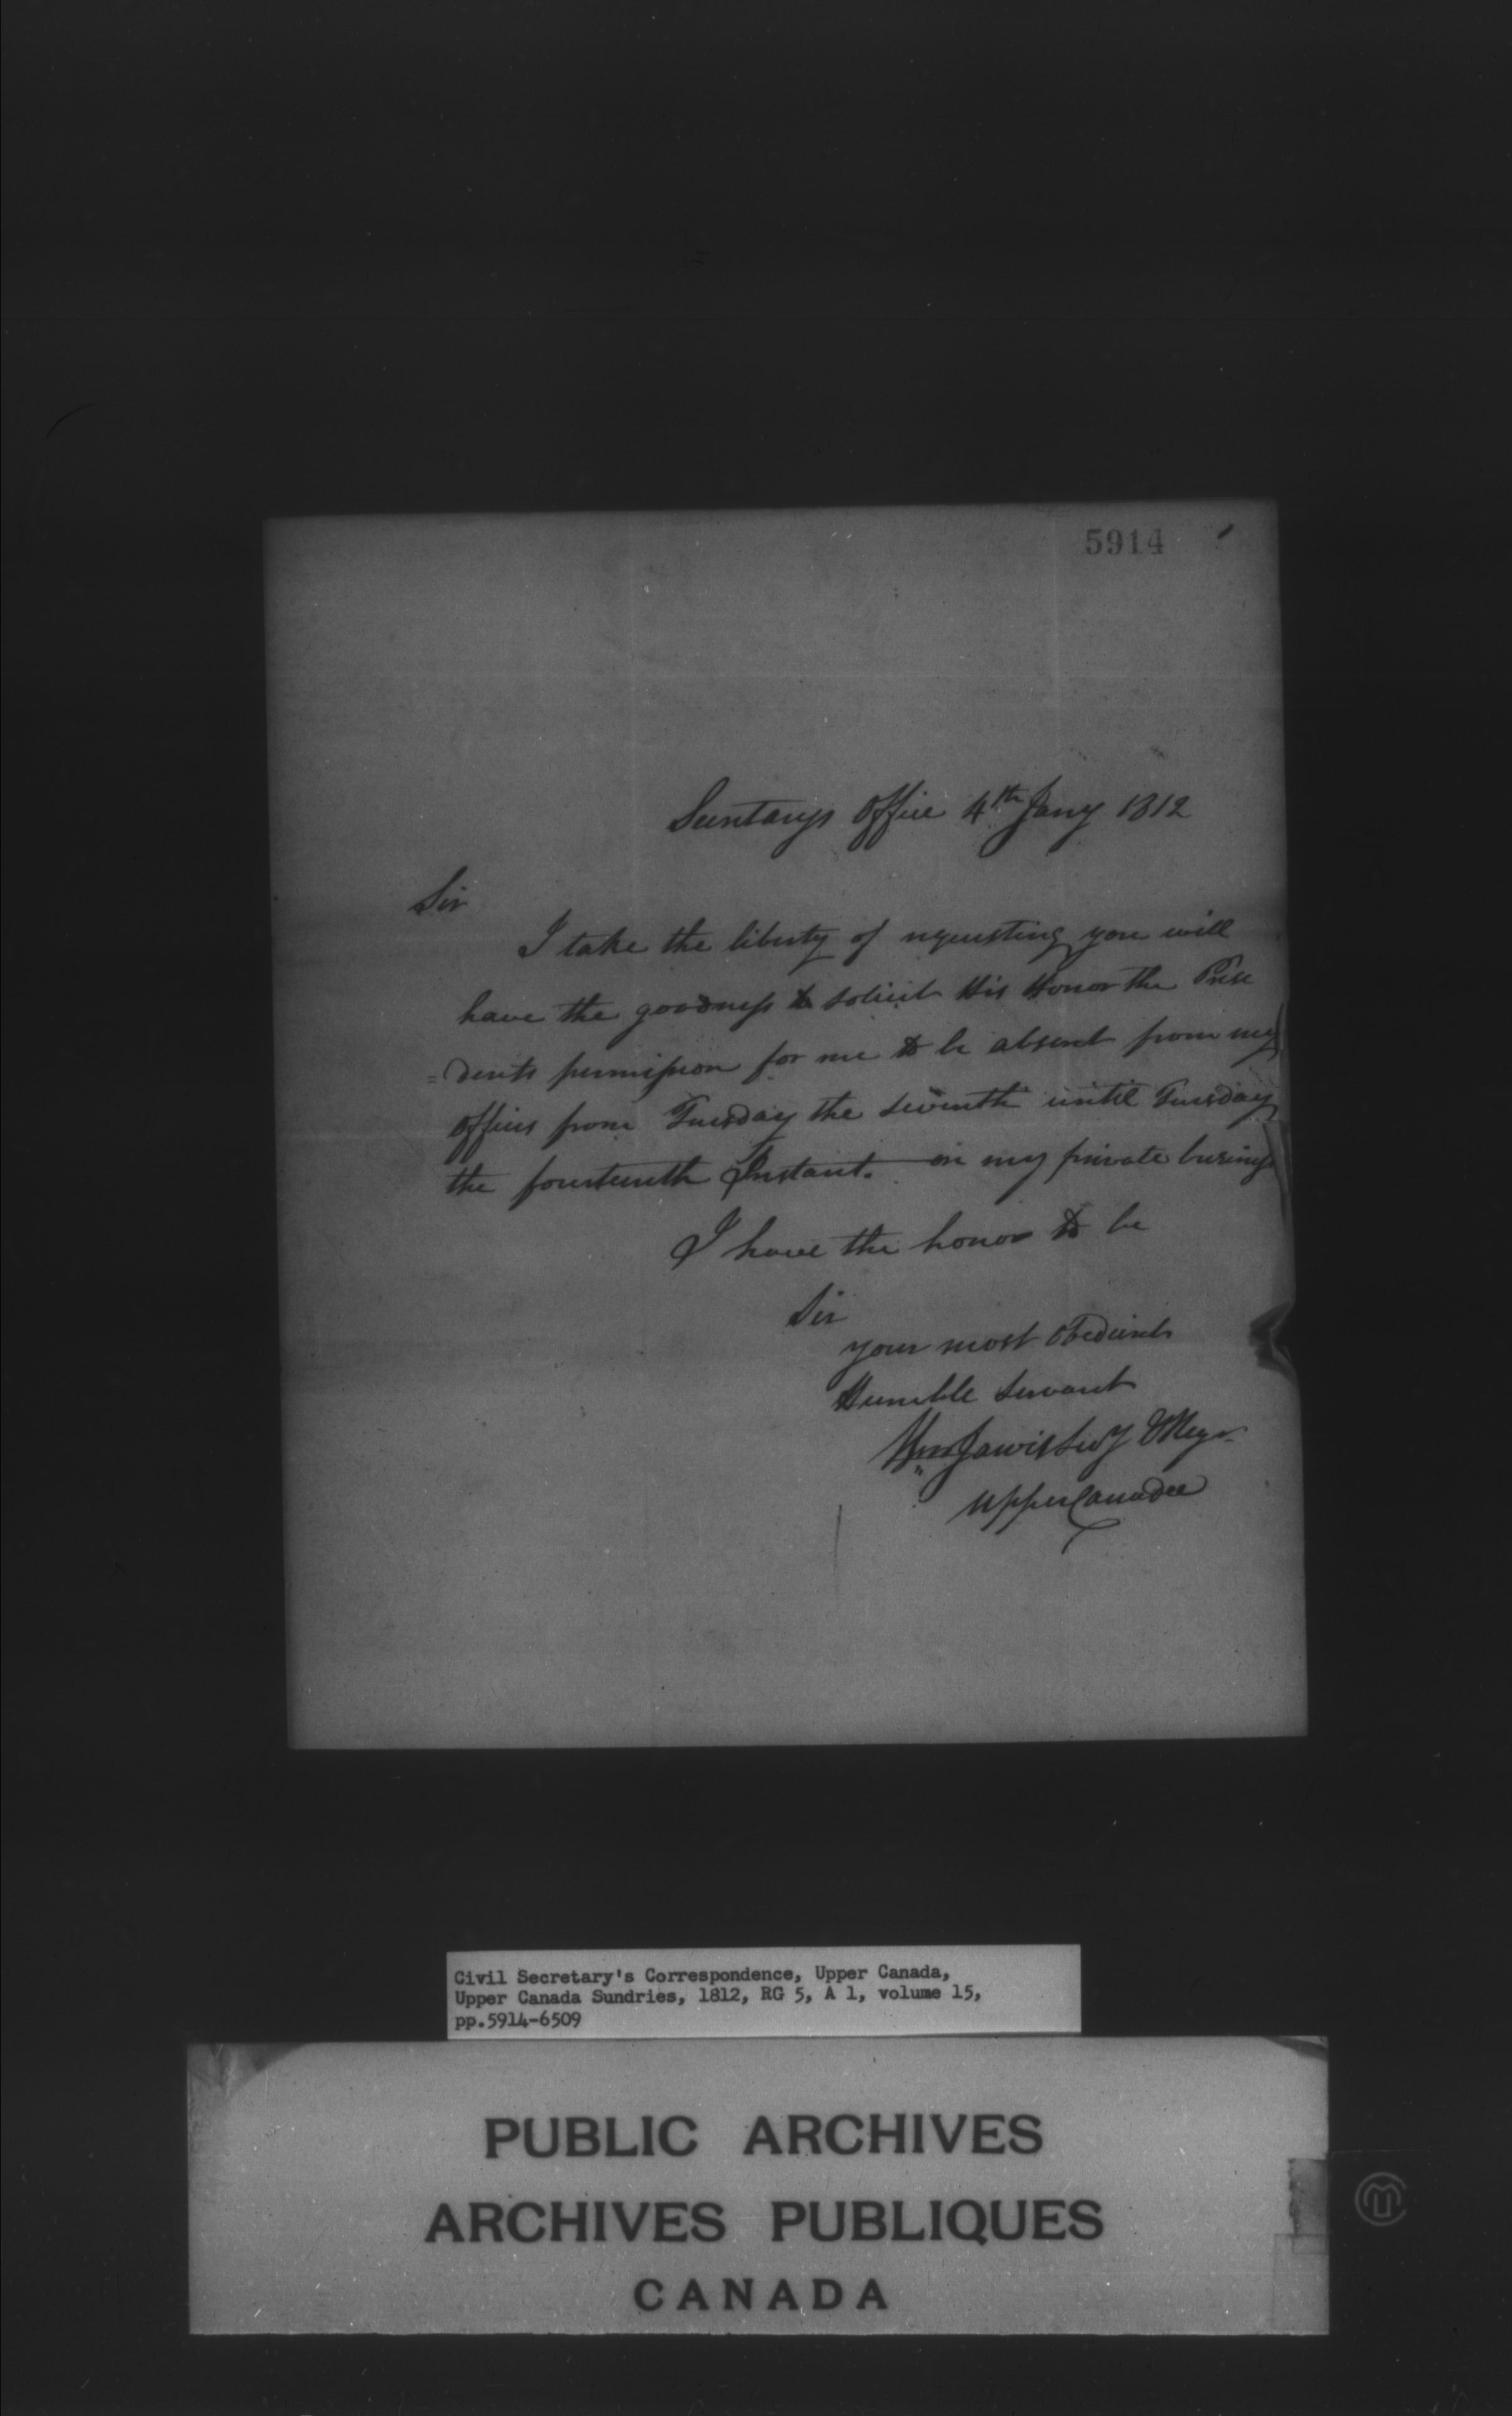 5914
Secretarys Office 4th Jany 1812
Sir
I take the liberty of requesting you will
have the goodness to solicit His Honor the Presi
=dents permission for me to be absent from my
Offices from Tuesday the seventh until Tuesday
the fourteenth Instant. on my private business
I have the honor to be
Sir
your most obedient
Humble Servant
Wm Jarvis Secy & Regr
Upper Canada
Civil Secretary's Correspondence, Upper Canada,
Upper Canada Sundries, 1812, RG 5, A 1, volume 15,
pp.5914-6509
PUBLIC ARCHIVES
ARCHIVES PUBLIQUES
CANADA